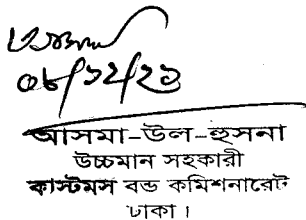 ০৮/১২/২১
আসমা-উল-হুসনা
উচ্চমান সহকারী
কাস্টমস বন্ড কমিশনারেট
ঢাকা।